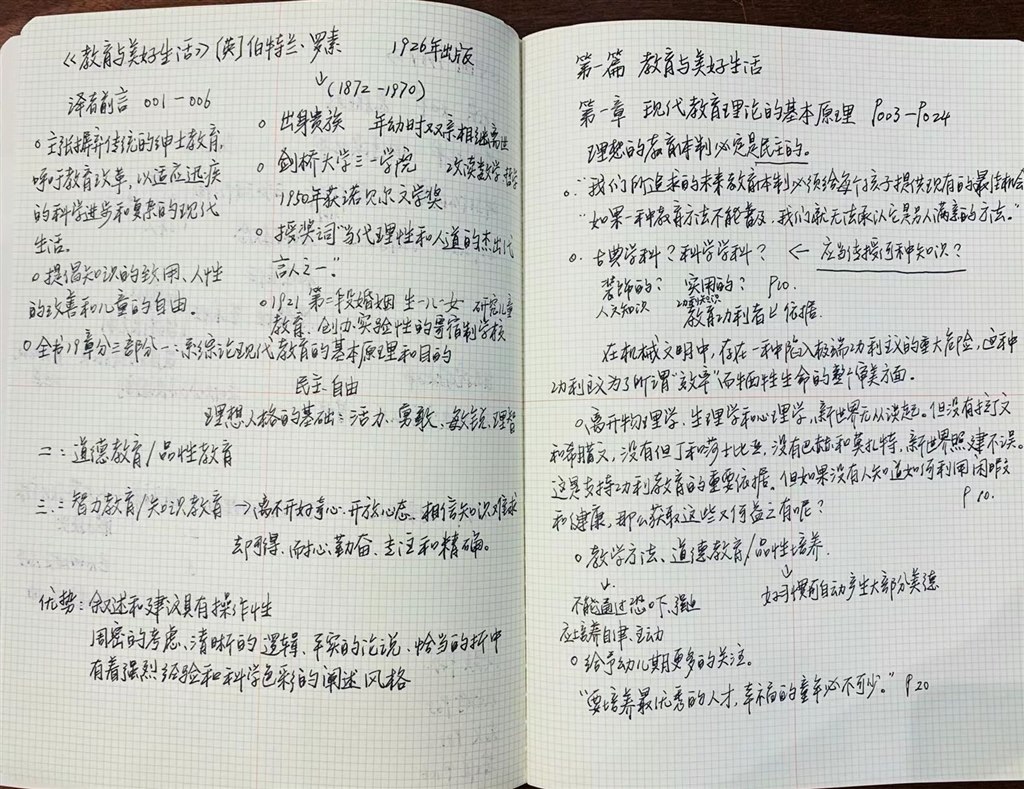 《教育与美好生活》[英]伯特兰·罗素 1926年出版
↓
(1872-1970)
译者前言 001-006
○ 主张摒弃传统的绅士教育,
呼吁教育改革,以适应迅疾
的科学进步和复杂的现代
生活。
○ 提倡知识的致用、人性
的改善和儿童的自由。
○ 出身贵族 年幼时双亲相继离世
○ 剑桥大学三一学院 改读数学 哲学
1950年获诺贝尔文学奖
○ 授奖词"当代理性和人道的杰出代
言人之一。"
○ 1921 第二段婚姻 生一儿一女 研究儿童
教育、创办实验性的寄宿制学校
○ 全书19章分三部分 一:系统论现代教育的基本原理和目的
民主、自由
理想人格的基础:活力、勇敢、敏锐、理智
二:道德教育/品性教育
三:智力教育/知识教育 → 离不开好奇心、开放心态、相信知识难求
却可得、耐心、勤奋、专注和精确。
优势:叙述和建议具有操作性
周密的考虑、清晰的逻辑、平实的论说、恰当的折中
有着强烈经验和科学色彩的阐述风格
第一篇 教育与美好生活
第一章 现代教育理论的基本原理 P003-P024
理想的教育体制必定是民主的。
○ "我们所追求的未来教育体制必须给每个孩子提供现有的最佳机会
"如果一种教育方法不能普及,我们就无法承认它是另人满意的方法。"
○ 古典学科?科学学科? ← 应当传授何种知识?
装饰的? 实用的? P10.
人文知识 功利知识
教育功利者 依据
在机械文明中,存在一种陷入极端功利主义的重大危险,这种
功利主义为了所谓"效率"而牺牲生命的整个审美方面。
○ 离开物理学、生理学和心理学,新世界无从谈起。但没有拉丁文
和希腊文,没有但丁和莎士比亚,没有巴赫和莫扎特,新世界照建不误。
这是支持功利教育的重要依据。但如果没有人知道如何利用闲暇
和健康,那么获取这些又何益之有呢? P10.
○ 教学方法、道德教育/品性培养.
↓ ↓
不能通过恐吓、强迫 好习惯可自动产生大部分美德
应培养自律、主动
○ 给予幼儿期更多的关注。
"要培养最优秀的人才,幸福的童年必不可少。" P20